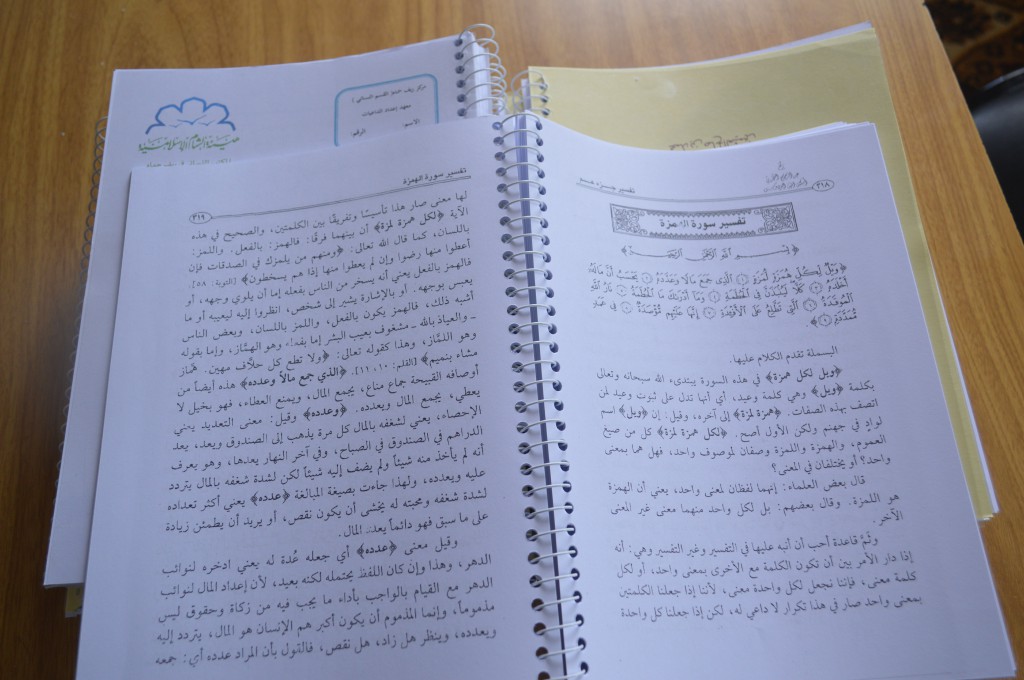 هيئة الشام الإسلامية
مركز ريف حماة القسم النسائي
معهد إعداد الداعيات
الاسم:
الرقم:
٣١٨
تفسير جزء عم
تفسير سورة الهمزة
﴿بسم الله الرحمن الرحيم﴾
﴿وَيْلٌ لِّكُلِّ هُمَزَةٍ لُّمَزَةٍ ۝١ الَّذِي جَمَعَ مَالًا وَعَدَّدَهُ ۝٢ يَحْسَبُ أَنَّ مَالَهُ
أَخْلَدَهُ ۝٣ كَلَّا لَيُنبَذَنَّ فِي الْحُطَمَةِ ۝٤ وَمَا أَدْرَاكَ مَا الْحُطَمَةُ ۝٥ نَارُ اللَّهِ
الْمُوقَدَةُ ۝٦ الَّتِي تَطَّلِعُ عَلَى الْأَفْئِدَةِ ۝٧ إِنَّهَا عَلَيْهِم مُّؤْصَدَةٌ ۝٨ فِي عَمَدٍ
مُّمَدَّدَةٍ ۝٩﴾.
البسملة تقدم الكلام عليها.
﴿ويل لكل همزة﴾ في هذه السورة يبتدىء الله سبحانه وتعالى
بكلمة ﴿ويل﴾ وهي كلمة وعيد، أي أنها تدل على ثبوت وعيد لمن
اتصف بهذه الصفات. ﴿همزة لمزة﴾ إلى آخره، وقيل: إن ﴿ويل﴾ اسم
لوادٍ في جهنم ولكن الأول أصح. ﴿لكل همزة لمزة﴾ كل من صيغ
العموم، والهمزة واللمزة وصفان لموصوف واحد، فهل هما بمعنى
واحد؟ أو يختلفان في المعنى؟
قال بعض العلماء: إنهما لفظان لمعنى واحد، يعني أن الهمزة
هو اللمزة. وقال بعضهم: بل لكل واحد منهما معنى غير المعنى
الآخر.
وثَمَّ قاعدة أحب أن أنبه عليها في التفسير وغير التفسير وهي: أنه
إذا دار الأمر بين أن تكون الكلمة مع الأخرى بمعنى واحد، أو لكل
كلمة معنى، فإننا نجعل لكل واحدة معنى، لأننا إذا جعلنا الكلمتين
بمعنى واحد صار في هذا تكرار لا داعي له، لكن إذا جعلنا كل واحدة
تفسير سورة الهمزة
٣١٩
لها معنى صار هذا تأسيسًا وتفريقًا بين الكلمتين، والصحيح في هذه
الآية ﴿لكل همزة لمزة﴾ أن بينهما فرقًا: فالهمز: بالفعل. واللمز:
باللسان، كما قال الله تعالى: ﴿ومنهم من يلمزك في الصدقات فإن
أعطوا منها رضوا وإن لم يعطوا منها إذا هم يسخطون﴾ [التوبة: ٥٨].
فالهمز بالفعل يعني أنه يسخر من الناس بفعله إما أن يلوي وجهه، أو
يعبس بوجهه. أو بالإشارة يشير إلى شخص، انظروا إليه ليعيبه أو ما
أشبه ذلك، فالهمز يكون بالفعل، واللمز باللسان، وبعض الناس
ـ والعياذ بالله ـ مشغوف بعيب البشر إما بفعله وهو الهمَّاز، وإما بقوله
وهو اللمَّاز، وهذا كقوله تعالى: ﴿ولا تطع كل حلاف مهين. همَّاز
مشاء بنميم﴾ [القلم: ١٠، ١١]. ﴿الذي جمع مالاً وعدده﴾ هذه أيضاً من
أوصافه القبيحة جماع مناع، يجمع المال، ويمنع العطاء، فهو بخيل لا
يعطي، يجمع المال ويعدده. ﴿وعدده﴾ وقيل: معنى التعديد يعني
الإحصاء، يعني لشغفه بالمال كل مرة يذهب إلى الصندوق ويعد، يعد
الدراهم في الصندوق في الصباح، وفي آخر النهار يعدها، وهو يعرف
أنه لم يأخذ منه شيئاً ولم يضف إليه شيئاً لكن لشدة شغفه بالمال يتردد
عليه ويعدده، ولهذا جاءت بصيغة المبالغة ﴿عدده﴾ يعني أكثر تعداده
لشدة شغفه ومحبته له يخشى أن يكون نقص، أو يريد أن يطمئن زيادة
على ما سبق فهو دائماً يعدد المال.
وقيل معنى ﴿عدده﴾ أي جعله عُدة له يعني ادخره لنوائب
الدهر، وهذا وإن كان اللفظ يحتمله لكنه بعيد، لأن إعداد المال لنوائب
الدهر مع القيام بالواجب بأداء ما يجب فيه من زكاة وحقوق ليس
مذموماً، وإنما المذموم أن يكون أكبر هم الإنسان هو المال، يتردد إليه
ويعدده، وينظر هل زاد، هل نقص، فالقول بأن المراد عدده أي: جمعه